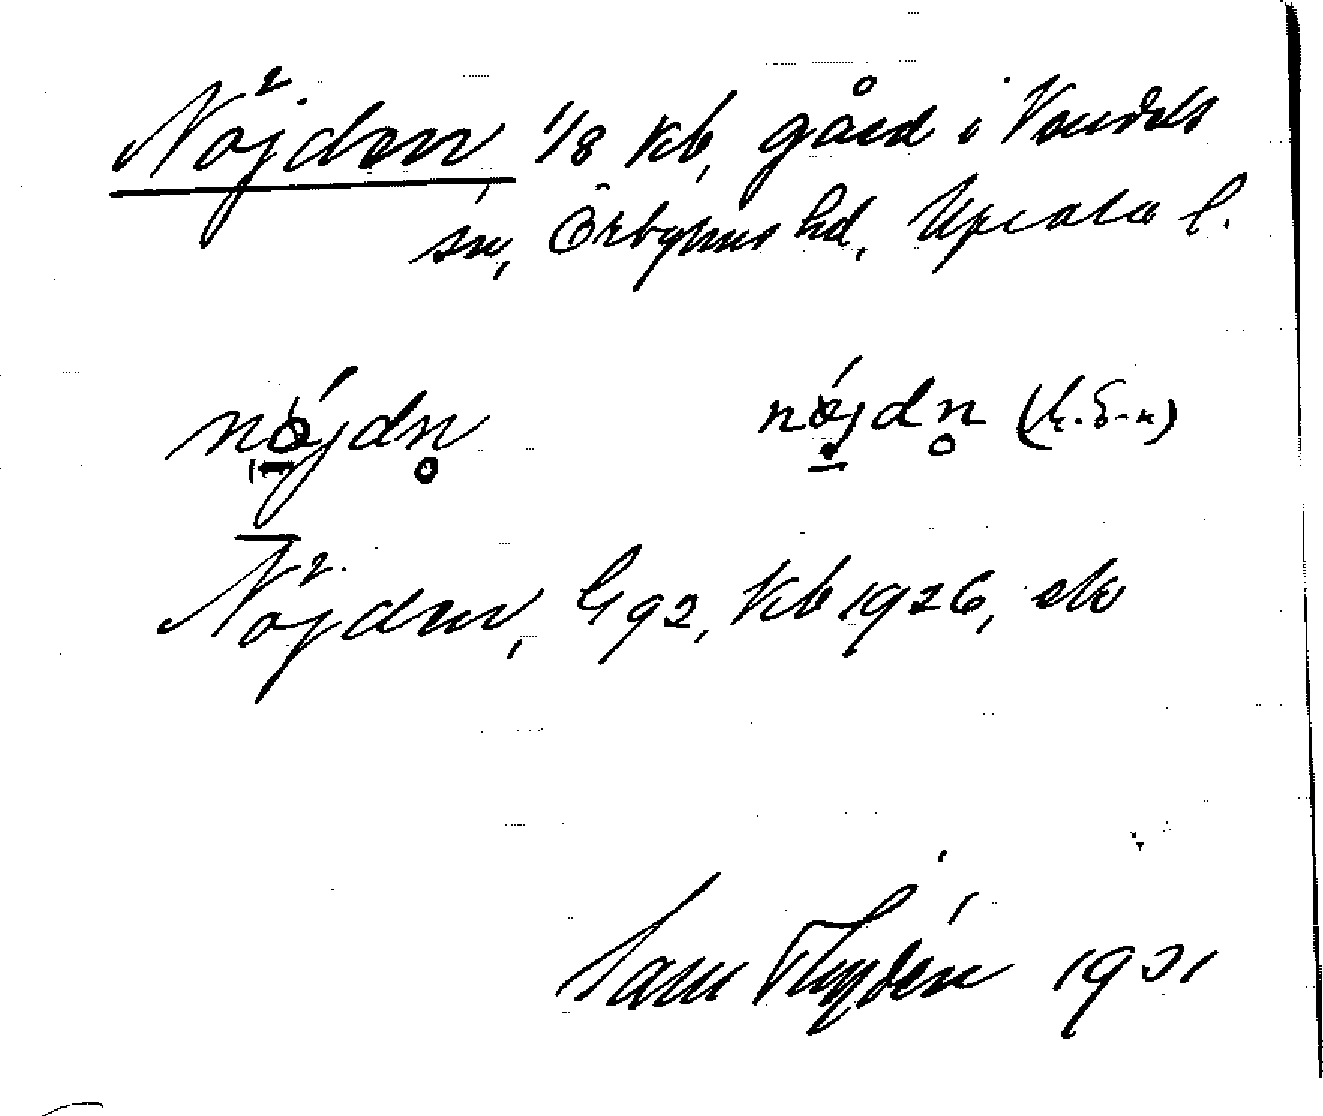 Nöjden 1/8 kb, gård i Vendels
sn, Örbyhus hd, Upsala l.
nöjdn nöjdn
Nöjden, G 92, Kb 1926, ek
Sam Flygdén 1931